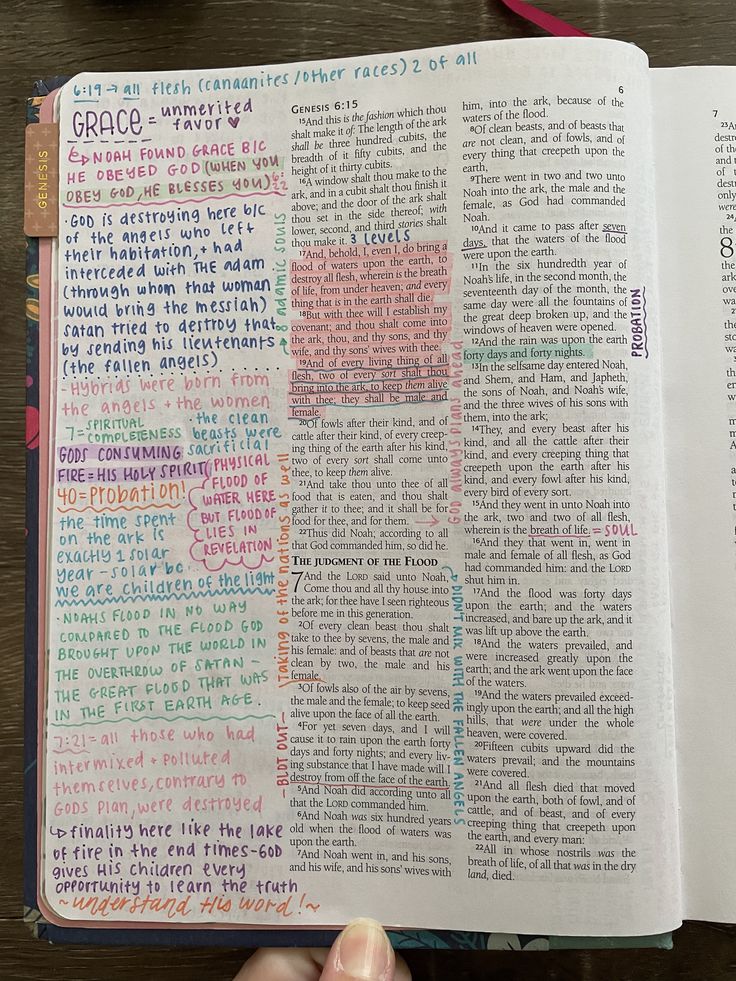 6:19 → all flesh (canaanites/other races) 2 of all
GENESIS
GRACE = unmerited
favor
NOAH FOUND GRACE B/C
HE OBEYED GOD (WHEN YOU
OBEY GOD, HE BLESSES YOU) 6:
22
· GOD is destroying here b/c
of the angels who left
their habitation, + had
interceded with THE adam
(through whom that woman
would bring the messiah)
satan tried to destroy that
by sending his lieutenants
(the fallen angels)
- Hybrids were born from
the angels + the women
7 = SPIRITUAL
COMPLETENESS
· the clean
beasts were
sacrificial
GODS CONSUMING
FIRE = HIS HOLY SPIRIT
40 = Probation!
PHYSICAL
FLOOD OF
WATER HERE
BUT FLOOD OF
LIES IN
REVELATION
the time spent
on the ark is
exactly 1 solar
year - solar bc
we are children of the light
· NOAHS FLOOD IN NO WAY
COMPARED TO THE FLOOD GOD
BROUGHT UPON THE WORLD IN
THE OVERTHROW OF SATAN -
THE GREAT FLOOD THAT WAS
IN THE FIRST EARTH AGE.
7:21 = all those who had
intermixed + polluted
themselves, contrary to
GODS PLAN, were destroyed
↳ finality here like the lake
of fire in the end times - GOD
gives His children every
opportunity to learn the truth
~understand His word!~
→ 8 adamic souls
Taking of the nations as well
- BLOT OUT -
GENESIS 6:15
15And this is the fashion which thou
shalt make it of: The length of the ark
shall be three hundred cubits, the
breadth of it fifty cubits, and the
height of it thirty cubits.
16A window shalt thou make to the
ark, and in a cubit shalt thou finish it
above; and the door of the ark shalt
thou set in the side thereof; with
lower, second, and third stories shalt
thou make it. 3 levels
17And, behold, I, even I, do bring a
flood of waters upon the earth, to
destroy all flesh, wherein is the breath
of life, from under heaven; and every
thing that is in the earth shall die.
18But with thee will I establish my
covenant; and thou shalt come into
the ark, thou, and thy sons, and thy
wife, and thy sons' wives with thee.
19And of every living thing of all
flesh, two of every sort shalt thou
bring into the ark, to keep them alive
with thee; they shall be male and
female.
20Of fowls after their kind, and of
cattle after their kind, of every creep-
ing thing of the earth after his kind,
two of every sort shall come unto
thee, to keep them alive.
21And take thou unto thee of all
food that is eaten, and thou shalt
gather it to thee; and it shall be for
food for thee, and for them.
22Thus did Noah; according to all
that God commanded him, so did he.
THE JUDGMENT OF THE FLOOD
7And the LORD said unto Noah,
Come thou and all thy house into
the ark; for thee have I seen righteous
before me in this generation.
2Of every clean beast thou shalt
take to thee by sevens, the male and
his female: and of beasts that are not
clean by two, the male and his
female.
3Of fowls also of the air by sevens,
the male and the female; to keep seed
alive upon the face of all the earth.
4For yet seven days, and I will
cause it to rain upon the earth forty
days and forty nights; and every liv-
ing substance that I have made will I
destroy from off the face of the earth.
5And Noah did according unto all
that the LORD commanded him.
6And Noah was six hundred years
old when the flood of waters was
upon the earth.
7And Noah went in, and his sons,
and his wife, and his sons' wives with
GOD always plans ahead
→ DIDN'T MIX WITH THE FALLEN ANGELS
6
him, into the ark, because of the
waters of the flood.
8Of clean beasts, and of beasts that
are not clean, and of fowls, and of
every thing that creepeth upon the
earth,
9There went in two and two unto
Noah into the ark, the male and the
female, as God had commanded
Noah.
10And it came to pass after seven
days, that the waters of the flood
were upon the earth.
11In the six hundredth year of
Noah's life, in the second month, the
seventeenth day of the month, the
same day were all the fountains of
the great deep broken up, and the
windows of heaven were opened.
12And the rain was upon the earth
forty days and forty nights.
PROBATION
13In the selfsame day entered Noah,
and Shem, and Ham, and Japheth,
the sons of Noah, and Noah's wife,
and the three wives of his sons with
them, into the ark;
14They, and every beast after his
kind, and all the cattle after their
kind, and every creeping thing that
creepeth upon the earth after his
kind, and every fowl after his kind,
every bird of every sort.
15And they went in unto Noah into
the ark, two and two of all flesh,
wherein is the breath of life. = SOUL
16And they that went in, went in
male and female of all flesh, as God
had commanded him: and the LORD
shut him in.
17And the flood was forty days
upon the earth; and the waters
increased, and bare up the ark, and it
was lift up above the earth.
18And the waters prevailed, and
were increased greatly upon the
earth; and the ark went upon the face
of the waters.
19And the waters prevailed exceed-
ingly upon the earth; and all the high
hills, that were under the whole
heaven, were covered.
20Fifteen cubits upward did the
waters prevail; and the mountains
were covered.
21And all flesh died that moved
upon the earth, both of fowl, and of
cattle, and of beast, and of every
creeping thing that creepeth upon
the earth, and every man:
22All in whose nostrils was the
breath of life, of all that was in the dry
land, died.
7